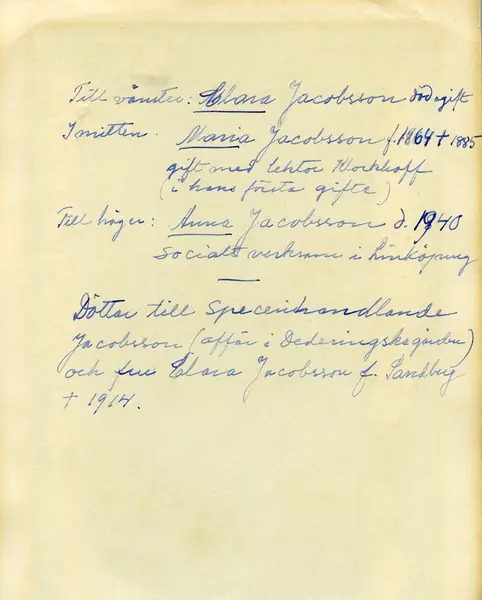 Till vänster: Clara Jacobsson död ogift
I mitten. Maria Jacobsson f. 1864 + 1885
gift med lektor Klockhoff
(i hans första gifte)
Till höger: Anna Jacobsson d. 1940
Socialt verksam i Linköping
Döttar till Specerihandlande
Jacobsson (affär i Dederingskagården)
och fru Clara Jacobsson f. Sandberg
+ 1914.